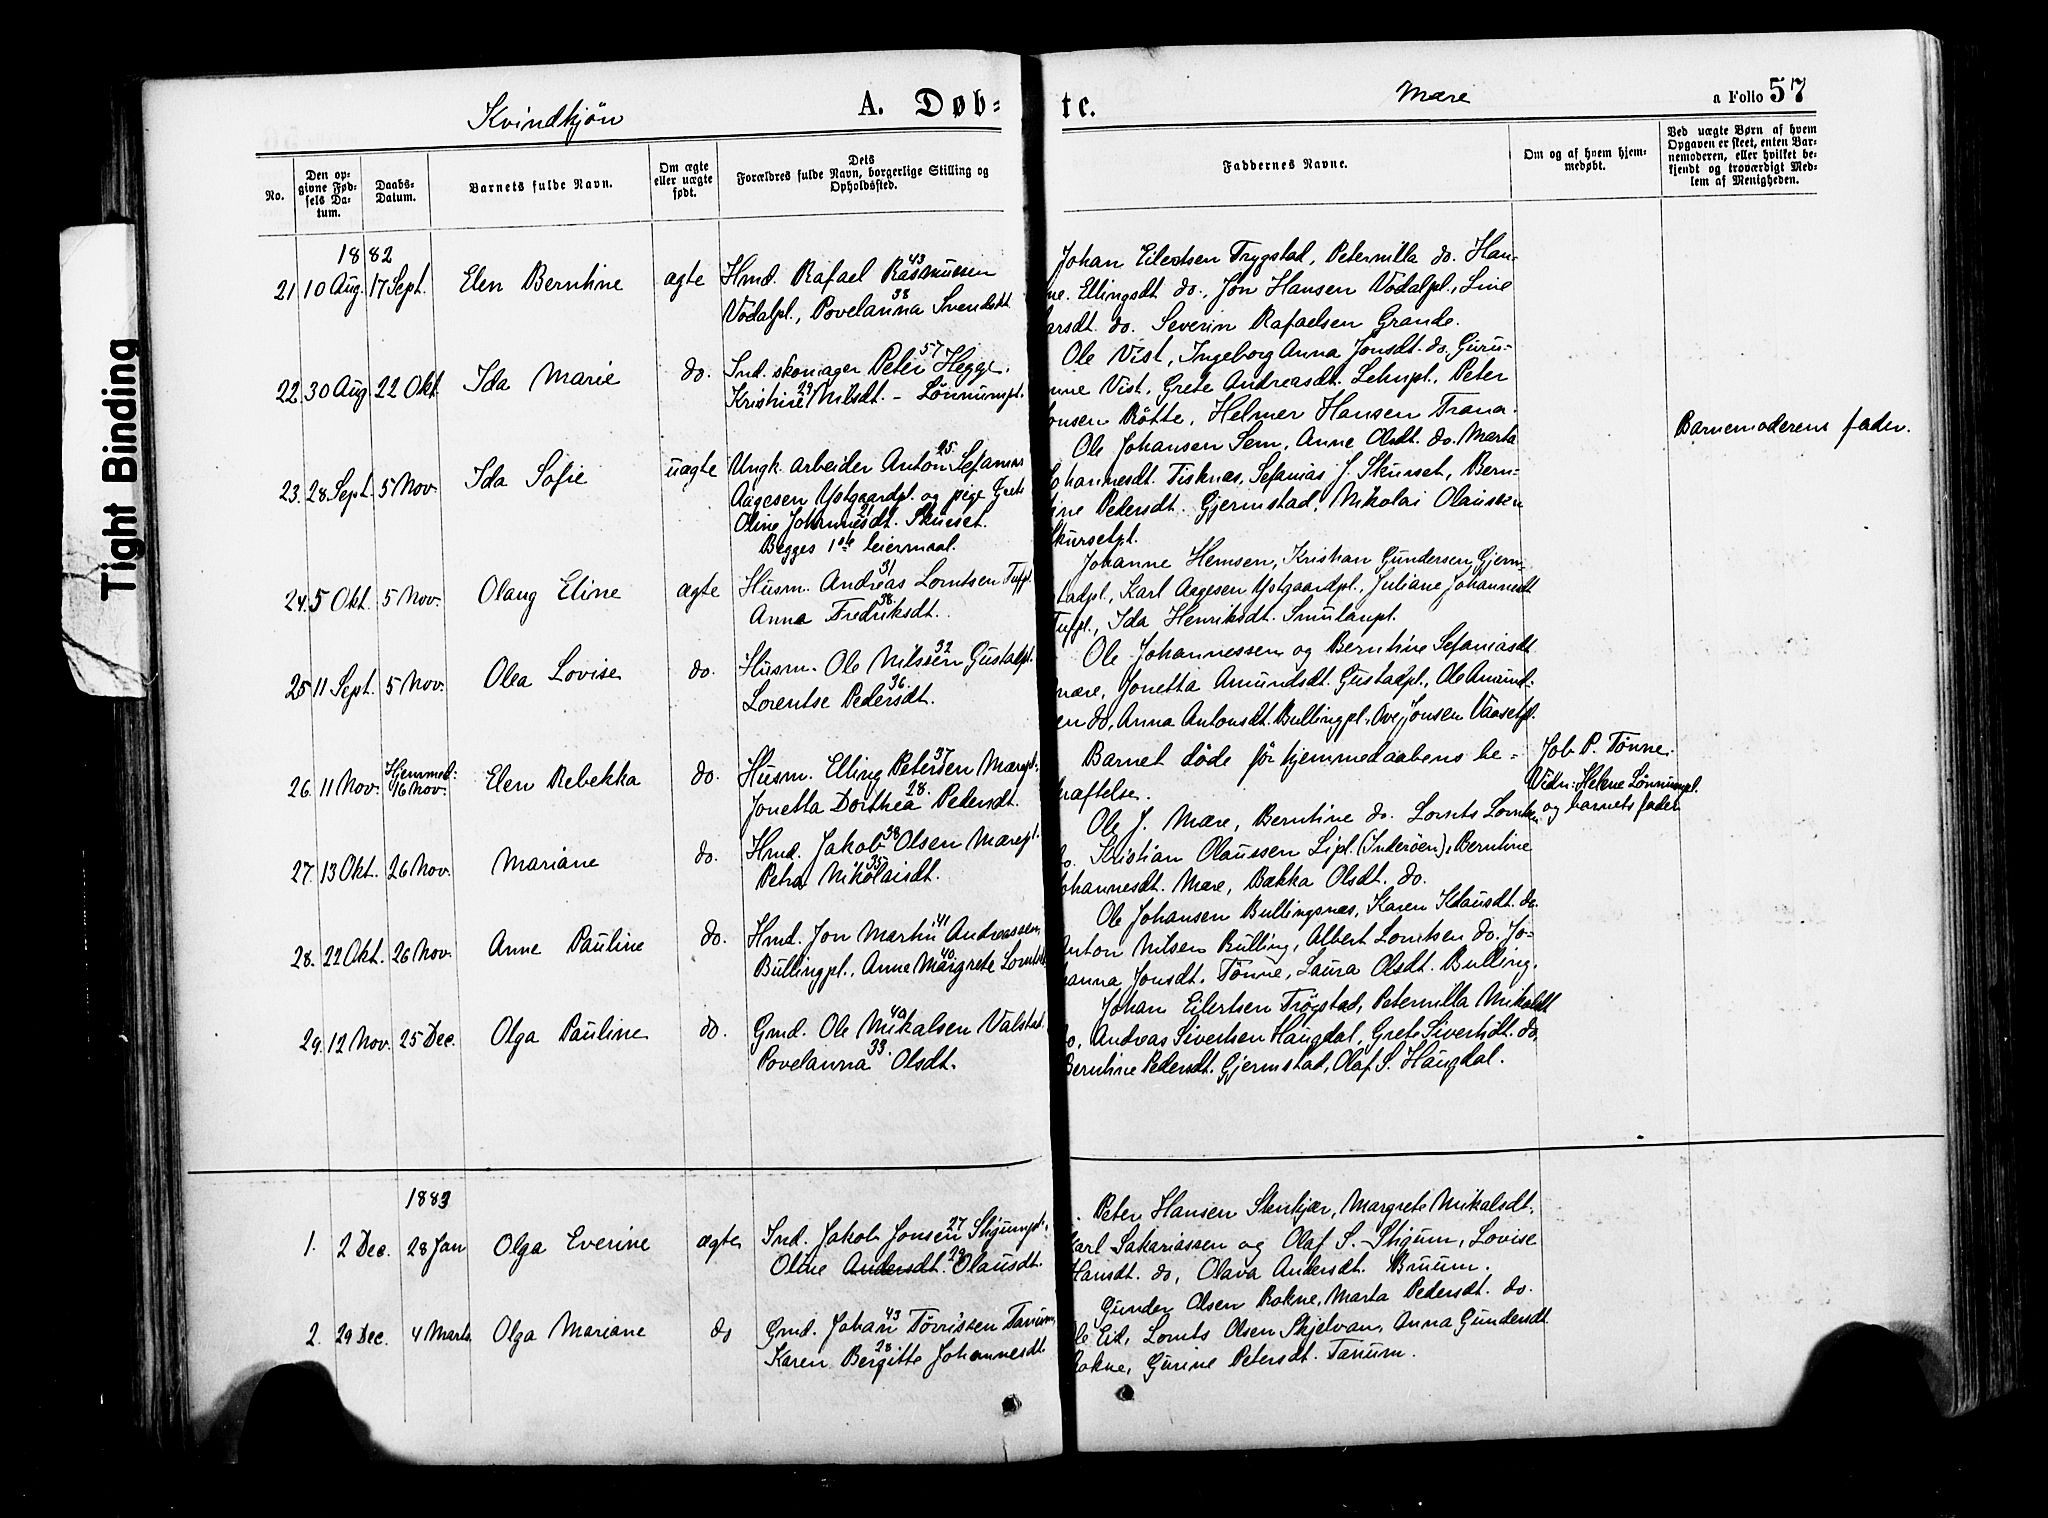 Tight Binding
Kvindkjön
A. Døb-
te.
Mære
a Folio 57
No.
Den op-
givne Fød-
sels Da-
tum.
Daabs-
Datum.
Barnets fulde Navn.
Om ægte
eller uægte
født.
Dets
Forældres fulde Navn, borgerlige Stilling og
Opholdssted.
Faddernes Navne.
Om og af hvem hjem-
medøbt.
Ved uægte Børn af hvem
Opgaven er skeet, enten Bar-
nemoderen, eller hvilket be-
kjendt og troværdigt Med-
lem af Menigheden.
1882
21 10 Aug. 17 Sept. Elen Berntine ægte Hmd. Rafael Rasmussen 43
Vodalpl., Povelanna 38 Svendsdt.
Johan Eilertsen Trygstad, Peternilla do. Han-
ne Ellingsdt do., Jon Hansen Vodalpl., Line
Larsdt. do. Severin Rafaelsen Grande.
22. 30 Aug. 22 Okt. Ida Marie do. Ind. skomager Peter 57 Hegge.
Kristine 29 Nilsdt. - Lønnumpl.
Ole Vist, Ingeborg Anna Jonsdt. do. Guru-
nne Vist, Grete Andreasdt. Lehnpl., Peter
onsen Røtte, Helmer Hansen Trana.
23. 28 Sept. 5 Nov. Ida Sofie uægte Ungk. arbeider Anton 25. Sefanias
Aagesen Ystgaardpl. og pige Grete
Oline Johannesdt. 21 Skurset.
Begges 1ste leiermaal.
Ole Johansen Sem, Anne Olsdt. do. Marta
Johannesdt. Tisknes, Sefanias J. Skurset, Bern-
tine Pedersdt. Gjermstad, Nikolai Olaussen
Skursetpl.
Barnemoderens fader.
24. 5 Okt. 5 Nov. Olaug Eline ægte Husm. Andreas 31 Lorntsen Tufpl.
Anna Fredriksdt. 38.
Johanne Hemsen, Kristian Gundersen Gjerm-
stadpl., Karl Aagesen Ystgaardpl., Juliane Johannesdt
Tufpl., Ida Henriksdt. Smulanpl.
25 11 Sept. 5 Nov. Olea Lovise do. Husm. Ole Nilssen 32 Gustadpl.
Lorentse Pedersdt. 36.
Ole Johannessen og Berntine Sefaniasdt
mære, Jonetta Amundsdt. Gustadpl., Ole Amund-
en do, Anna Antonsdt. Bullingpl., Ove Jonsen Vaasetpl.
26. 11 Nov. Hjemmed: 16 Nov. Elen Rebekka do. Husm. Elling Petersen 37 Mærepl.
Jonetta Dorthea 28. Pedersdt.
Barnet døde før hjemmedaabens be-
kræftelse.
Job P. Tønne.
Vidn: Helene Lønnumpl.
og barnets fader
27. 13 Okt. 26 Nov. Mariane do. Hmd. Jakob 38 Olsen Mærepl.
Petra Nikolaisdt. 35
Ole J. Mære, Berntine do. Lornts Lorntsen
do. Kristian Olaussen Lipl. (Inderøen), Berntine
Johannesdt. Mære, Bekka Olsdt. do.
28. 22 Okt. 26 Nov. Anne Pauline do. Hmd. Jon Martin 41 Andreassen
Bullingpl., Anne Margrete 40 Lorntsdt.
Ole Johansen Bullingsnes, Karen Klausdt. do.
Anton Nilsen Bulling, Albert Lorntsen do. Jo-
hanna Jonsdt. Tønne, Laura Olsdt. Bulling.
29. 12 Nov. 25 Dec. Olga Pauline do. Gmd. Ole Mikalsen 40 Valstad
Povelanna 33. Olsdt.
Johan Eilertsen Trögstad, Peternilla Mikalsdt
do, Andreas Sivertsen Haugdal, Grete Sivertsdt. do.
Berntine Pedersdt. Gjermstad, Olaf S. Haugdal.
1883
1. 2 Dec. 28 Jan Olga Everine ægte Ind. Jakob Jonsen 27 Stigumpl.,
Oline Andersdt. 29 Olausdt.
Peter Hansen Stenkjær, Margrete Mikalsdt.
Karl Sakariassen og Olaf S. Stigum, Lovise
Hansdt. do, Olava Andersdt. Bruem.
2. 29 Dec. 4 Marts Olga Mariane do Gmd. Johan 43 Tørrissen Tanum,
Karen Bergitte 28 Johannesdt.
Gunder Olsen Rokne, Marta Pedersdt. do.
Ole Eid, Lornts Olsen Skjelvan, Anna Gundersdt
Rokne, Gurine Petersdt. Tanum.